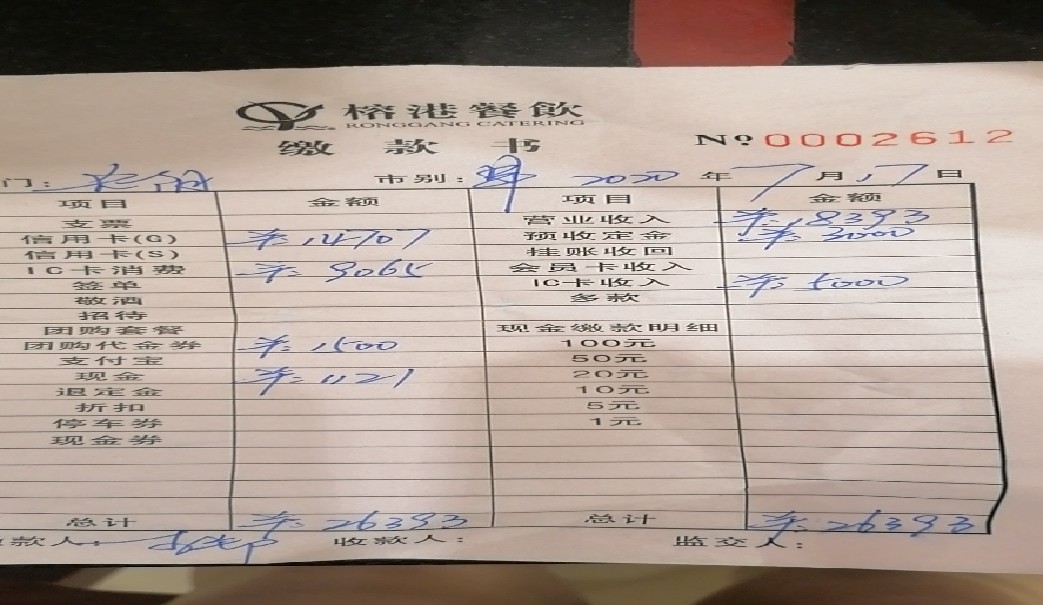 榕港餐飲
RONGGANG CATERING
缴款书 Nº 0002612
门: 市别: 2020年7月17日
项目 金额 项目 金额
支票 营业收入 羊:18393
信用卡(G) 羊:14707 预收定金 羊:3000
信用卡(S) 挂账收回
IC卡消费 羊:9065 会员卡收入
签单 IC卡收入 羊:5000
敬酒 多款
招待
团购套餐 现金缴款明细
团购代金券 羊:1500 100元
支付宝 50元
现金 羊:1121 20元
退定金 10元
折扣 5元
停车券 1元
现金券
总计 羊:26393 总计 羊:26393
款人: 收款人: 监交人: